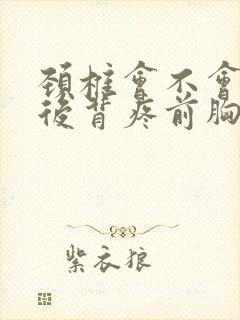 頚椎會不會
後背疼前胸
紫衣狼